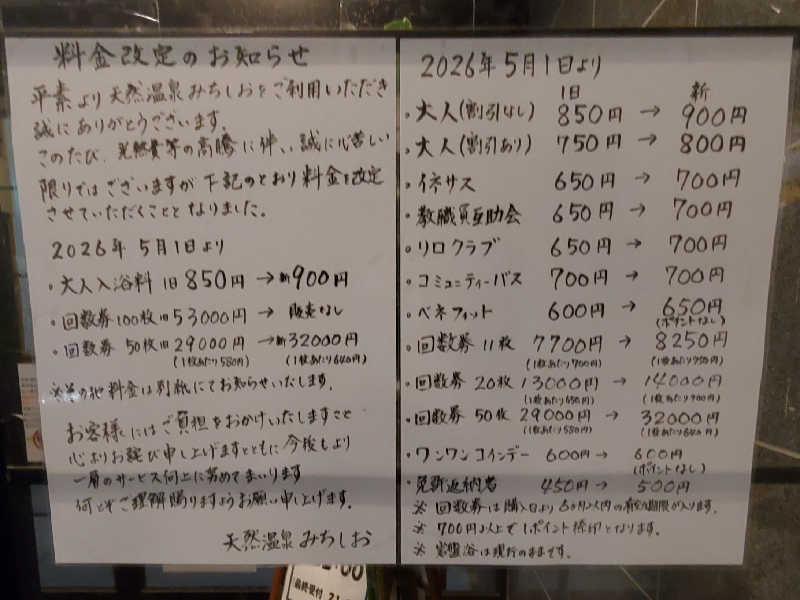 料金改定のお知らせ
平素より天然温泉みちしおをご利用いただき
誠にありがとうございます。
このたび、光熱費等の高騰に伴い、誠に心苦しい
限りではございますが下記のとおり料金を改定
させていただくこととなりました。
2026年 5月1日より
・大人入浴料 旧850円 →新900円
・回数券100枚旧53000円 → 販売なし
・回数券 50枚旧29000円 →新32000円
(1枚あたり580円) (1枚あたり640円)
※その他料金は別紙にてお知らせいたします。
お客様にはご負担をおかけいたしますこと
心よりお詫び申し上げますとともに今後もより
一層のサービス向上に努めてまいります
何とぞご理解賜りますようお願い申し上げます。
天然温泉みちしお
2026年5月1日より
旧 新
・大人(割引なし) 850円 → 900円
・大人(割引あり) 750円 → 800円
・イネサス 650円 → 700円
・教職員互助会 650円 → 700円
・リロクラブ 650円 → 700円
・コミュニティーバス 700円 → 700円
・ベネフィット 600円 → 650円
(ポイントなし)
・回数券 11枚 7700円 → 8250円
(1枚あたり700円) (1枚あたり750円)
・回数券 20枚 13000円 → 14000円
(1枚あたり650円) (1枚あたり700円)
・回数券 50枚 29000円 → 32000円
(1枚あたり580円) (1枚あたり640円)
・ワンワンコインデー 600円→ 600円
(ポイントなし)
・免許返納者 450円→ 500円
※ 回数券は購入日より6か月以内の有効期限が入ります。
※ 700円以上で1ポイント捺印となります。
※ 岩盤浴は現行のままです。
最終受付 21